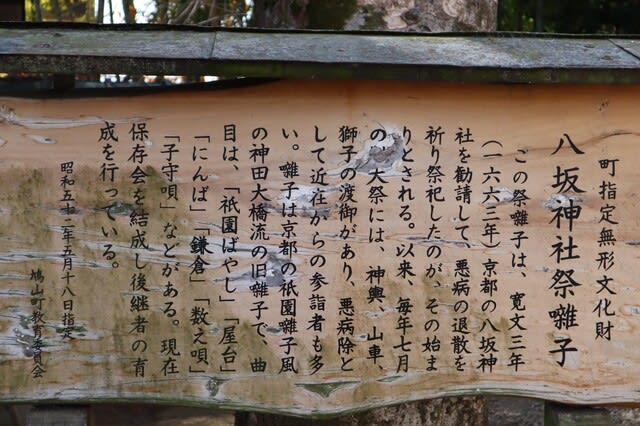 町指定無形文化財
八坂神社祭囃子
この祭囃子は、寛文三年
(一六六三年)京都の八坂神
社を勧請して、悪病の退散を
祈り祭祀したのが、その始ま
りとされる。以来、毎年七月
の大祭には、神輿、山車、
獅子の渡御があり、悪病除と
して近在からの参詣者も多
い。囃子は京都の祇園囃子風
の神田大橋流の旧囃子で、曲
目は、「祇園ばやし」「屋台」
「にんば」「鎌倉」「数え唄」
「子守唄」などがある。現在
保存会を結成し後継者の育
成を行っている。
昭和五十二年五月十八日指定
鳩山町教育委員会